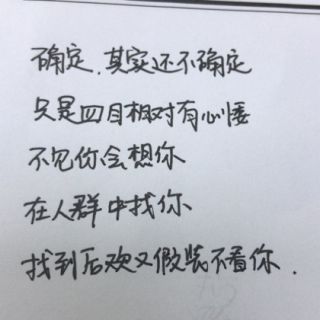 确定、其实还不确定
只是四目相对有心悸
不见你会想你
在人群中找你
找到后欢又假装不看你.